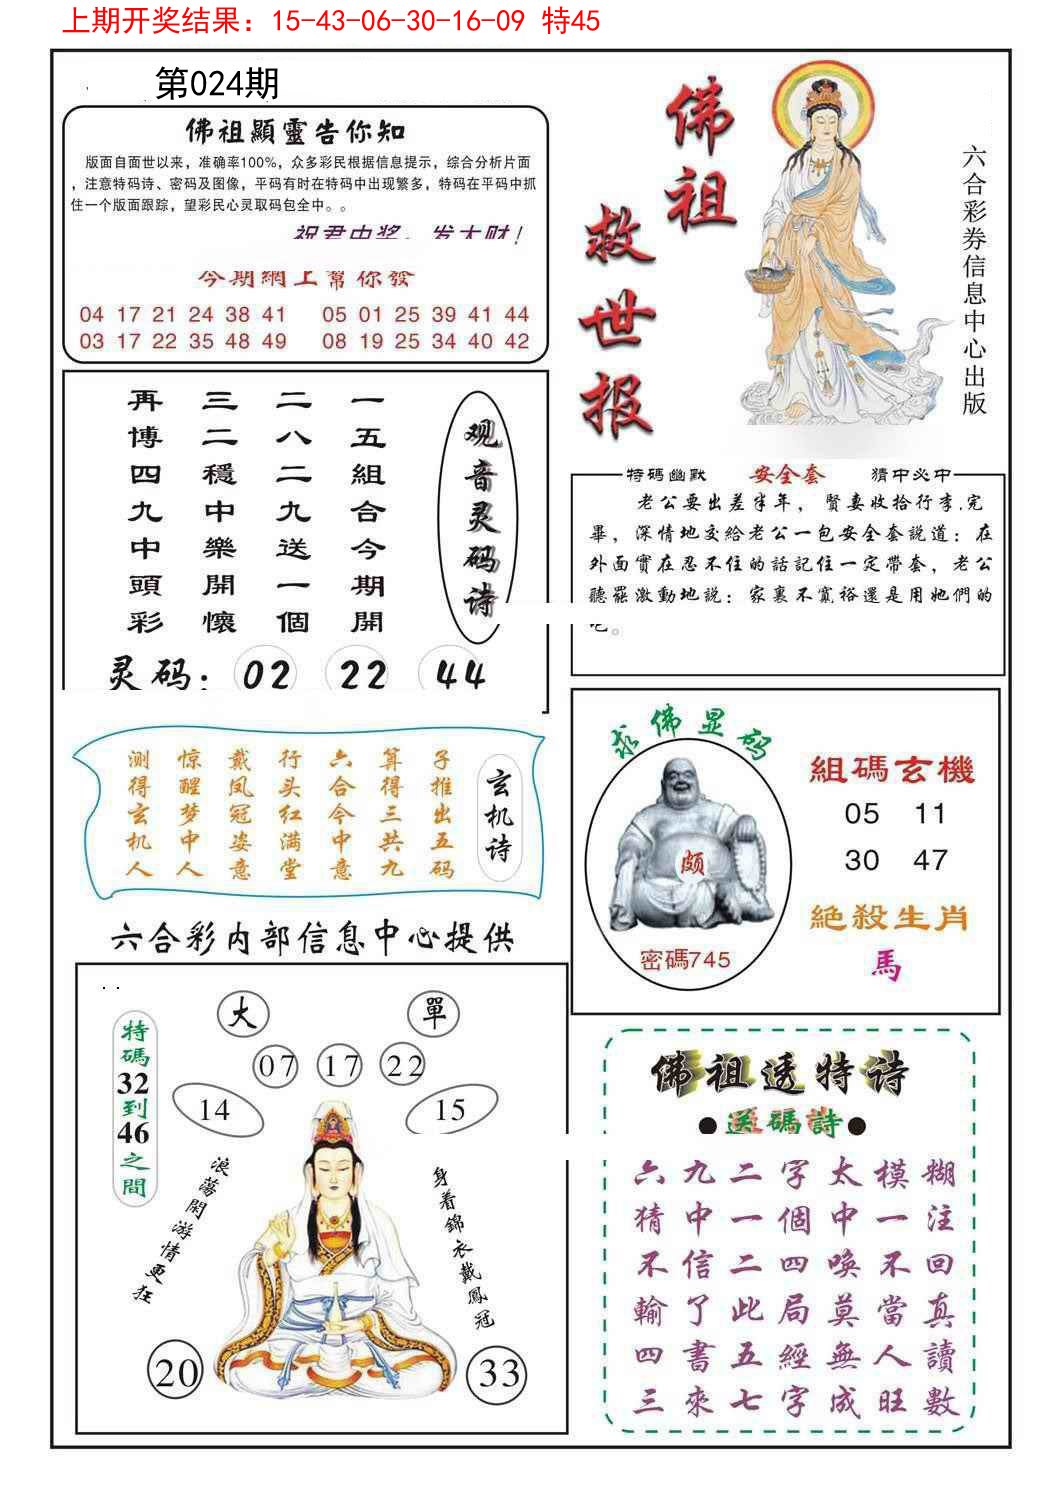 上期开奖结果：15-43-06-30-16-09 特45
第024期
佛祖顯靈告你知
版面自面世以来，准确率100%，众多彩民根据信息提示，综合分析片面
，注意特码诗、密码及图像，平码有时在特码中出现繁多，特码在平码中抓
住一个版面跟踪，望彩民心灵取码包全中。。
祝君中奖，发大财！
今期網上幫你發
04 17 21 24 38 41 05 01 25 39 41 44
03 17 22 35 48 49 08 19 25 34 40 42
佛祖
救世报
六合彩券信息中心出版
观音灵码诗
一五組合今期開
二八二九送一個
三二穩中樂開懷
再博四九中頭彩
灵码：02 22 44
特碼幽默 安全套 猜中必中
老公要出差半年，賢妻收拾行李.完
畢，深情地交給老公一包安全套說道：在
外面實在忍不住的話記住一定帶套，老公
聽罷激動地説：家裏不寬裕還是用她們的
吧。
玄机诗
子推出五码
算得三共九
六合今中意
行头红满堂
戴凤冠姿意
惊醒梦中人
测得玄机人
求佛显码
颇
密碼745
組碼玄機
05 11
30 47
絕殺生肖
馬
六合彩内部信息中心提供
大 單
07 17 22
14 15
特碼32到46之間
浪蕩閑游情更狂
身着錦衣戴鳳冠
20 33
佛祖透特诗
●送碼詩●
六九二字太模糊
猜中一個中一注
不信二四喚不回
輸了此局莫當真
四書五經無人讀
三來七字成旺數